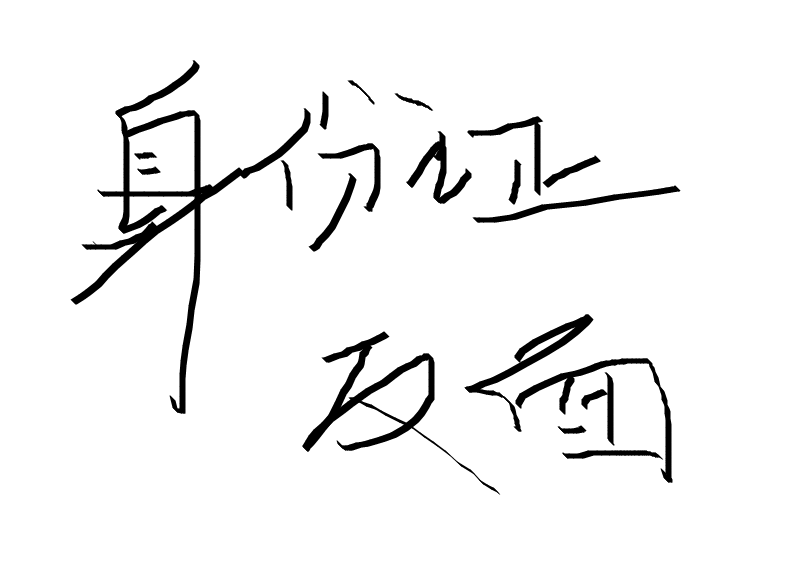 身份证
反面